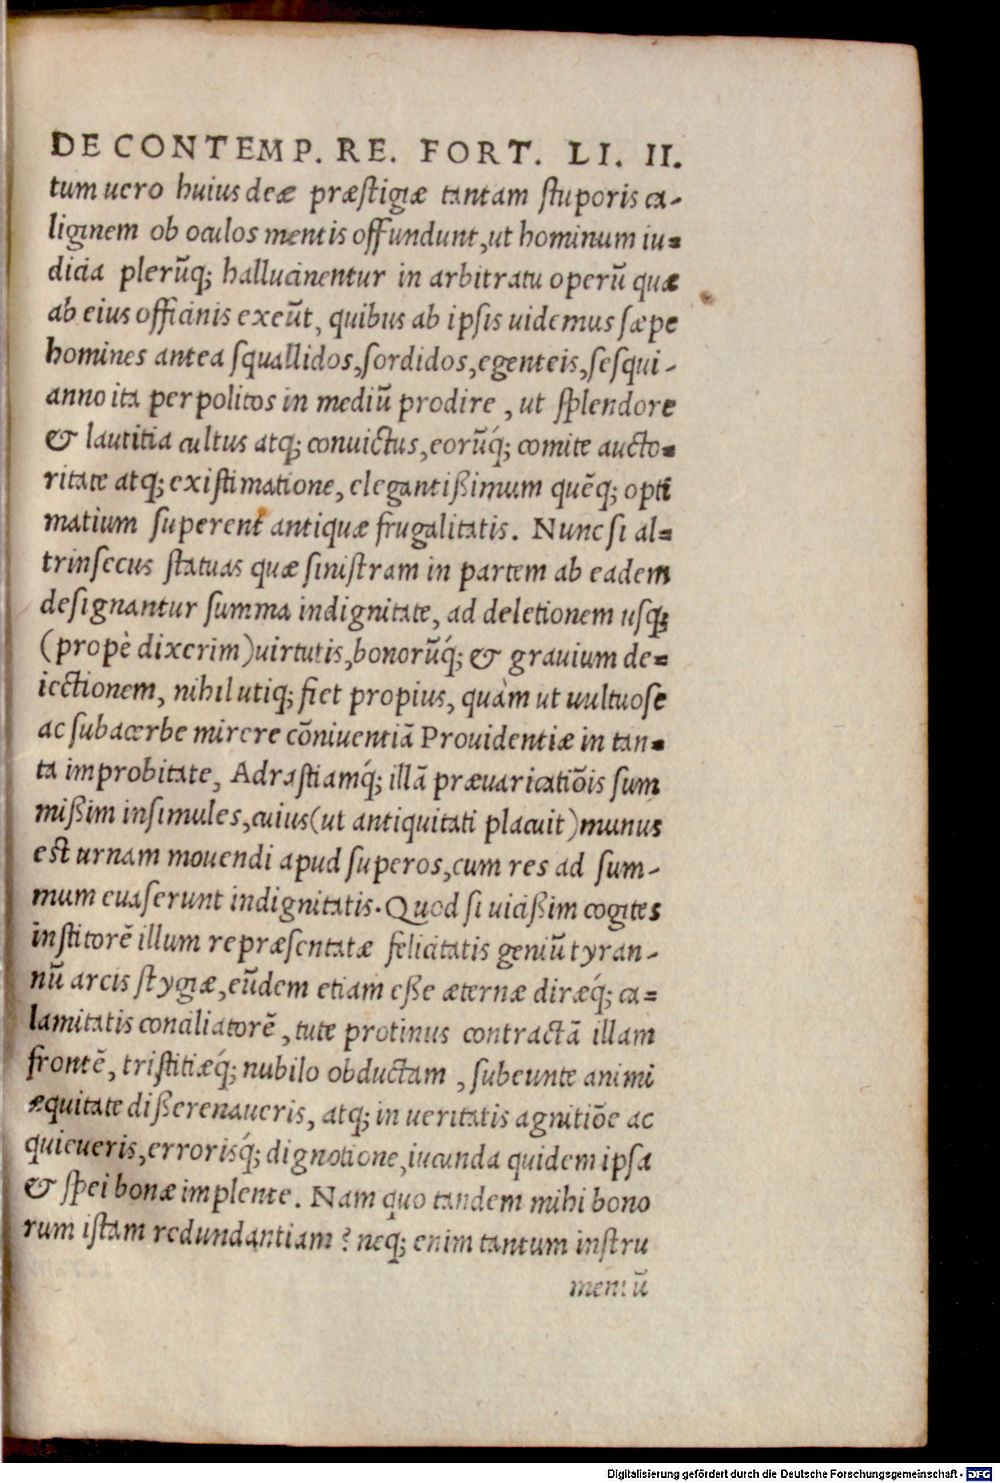 DE CONTEMP. RE. FORT. LI. II.
tum uero huius deæ præstigiæ tantam stuporis ca-
liginem ob oculos mentis offundunt, ut hominum iu-
dicia plerũq; hallucinentur in arbitratu operũ quæ
ab eius officinis exeũt, quibus ab ipsis uidemus sæpe
homines antea squallidos, sordidos, egenteis, sesqui-
anno ita perpolitos in mediũ prodire, ut splendore
& lautitia cultus atq; conuictus, eorũq́; comite aucto-
ritate atq; existimatione, elegantißimum quẽq; opti
matium superent antiquæ frugalitatis. Nunc si al-
trinsecus statuas quæ sinistram in partem ab eadem
designantur summa indignitate, ad deletionem usq;
(propè dixerim) uirtutis, bonorũq́; & grauium de-
iectionem, nihil utiq; fiet propius, quàm ut uultuose
ac subacerbe mirere cõniuentiã Prouidentiæ in tan-
ta improbitate, Adrastiamq́; illã præuaricatiõis sum
mißim insimules, cuius (ut antiquitati placuit) munus
est urnam mouendi apud superos, cum res ad sum-
mum euaserunt indignitatis. Quod si uicißim cogites
institorẽ illum repræsentatæ felicitatis geniũ tyran-
nũ arcis stygiæ, eũdem etiam eße æternæ diræq́; ca-
lamitatis conciliatorẽ, tute protinus contractã illam
frontẽ, tristitiæq́; nubilo obductam, subeunte animi
æquitate dißerenaueris, atq; in ueritatis agnitiõe ac
quieueris, errorisq́; dignotione, iucunda quidem ipsa
& spei bonæ implente. Nam quo tandem mihi bono
rum istam redundantiam? neq; enim tantum instru
mentũ
Digitalisierung gefördert durch die Deutsche Forschungsgemeinschaft - DFG